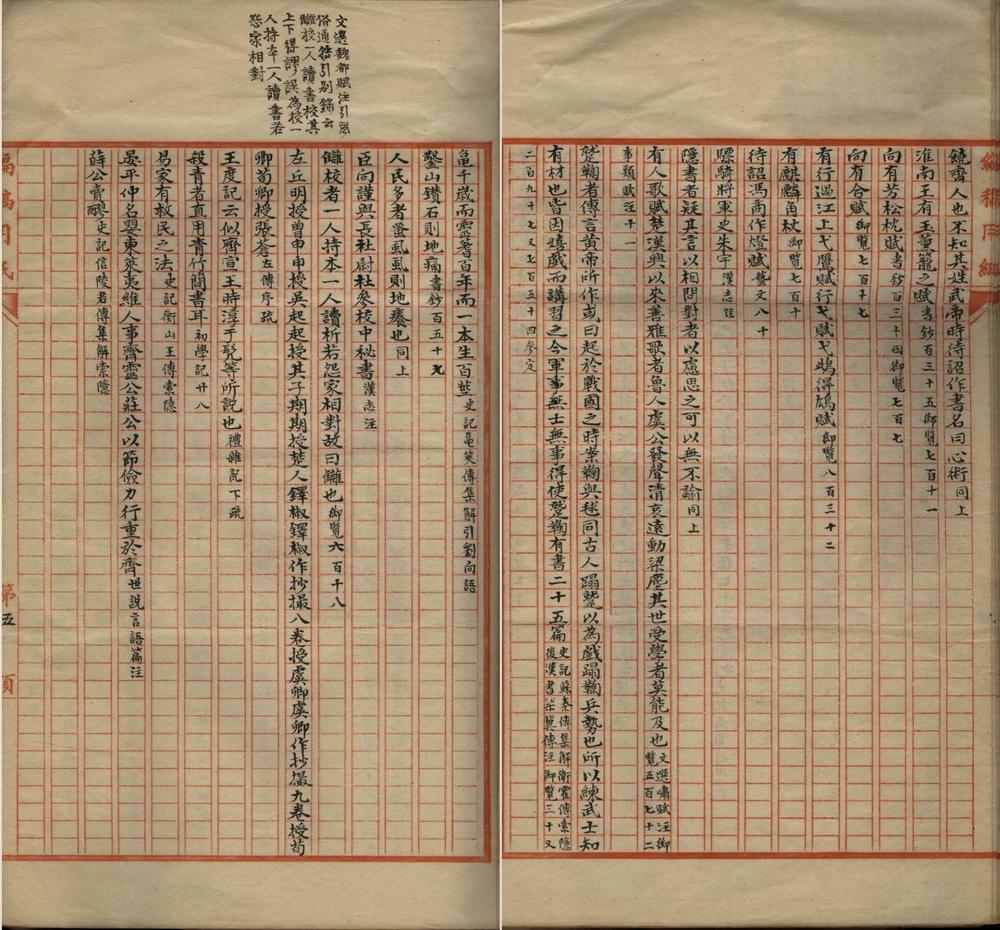 饒齋人也不知其姓武帝時待詔作書名曰心術同上
淮南王有玉熏籠之賦書鈔百三十五御覽七百十一
向有芳松枕賦書鈔百三十四御覽七百七
向有合賦御覽七百十七
有行過江上弋鴈賦行弋賦弋雌得鴈賦御覽八百三十二
有麒麟角杖御覽七百十
待詔馮商作燈賦藝文八十
驃騎將軍史朱宇漢志注
隱書者疑其言以相問對者以慮思之可以無不諭同上
有人歌賦楚漢興以來善雅歌者魯人虞公發聲清哀遠動梁塵其世受學者莫能及也文選嘯賦注御覽五百七十二
事類賦注十一
蹵鞠者傳言黃帝所作或曰起於戰國之時案鞠與毬同古人蹋蹵以為戲蹋鞠兵勢也所以練武士知
有材也皆因嬉戲而講習之今軍事無士無事得使蹵鞠有書二十五篇史記蘇秦傳集解衛霍傳索隱後漢書梁冀傳注御覽三十又
二百九十七又七百五十四參定
文選魏都賦注引風
俗通稱引別錄云
讎校一人讀書校其
上下得謬誤為校一
人持本一人讀書若
怨家相對
龜千歲而靈蓍百年而一本生百莖史記龜筴傳集解引劉向語
鑿山鑽石則地痛書鈔百五十九
人民多者蚤虱虱則地癢也同上
臣向謹與長社尉杜參校中秘書漢志注
讎校者一人持本一人讀析若怨家相對故曰讎也御覽六百十八
左丘明授曾申申授吳起起授其子期期授楚人鐸椒鐸椒作抄撮八卷授虞卿虞卿作抄撮九卷授荀
卿荀卿授張蒼左傳序疏
王度記云似齊宣王時淳于髡等所說也禮雜記下疏
殺青者直用青竹簡書耳初學記廿八
易家有救民之法史記衡山王傳索隱
晏平仲名嬰東萊夷維人事齊靈公莊公以節儉力行重於齊世說言語篇注
薛公賣醪史記信陵君傳集解索隱
第五